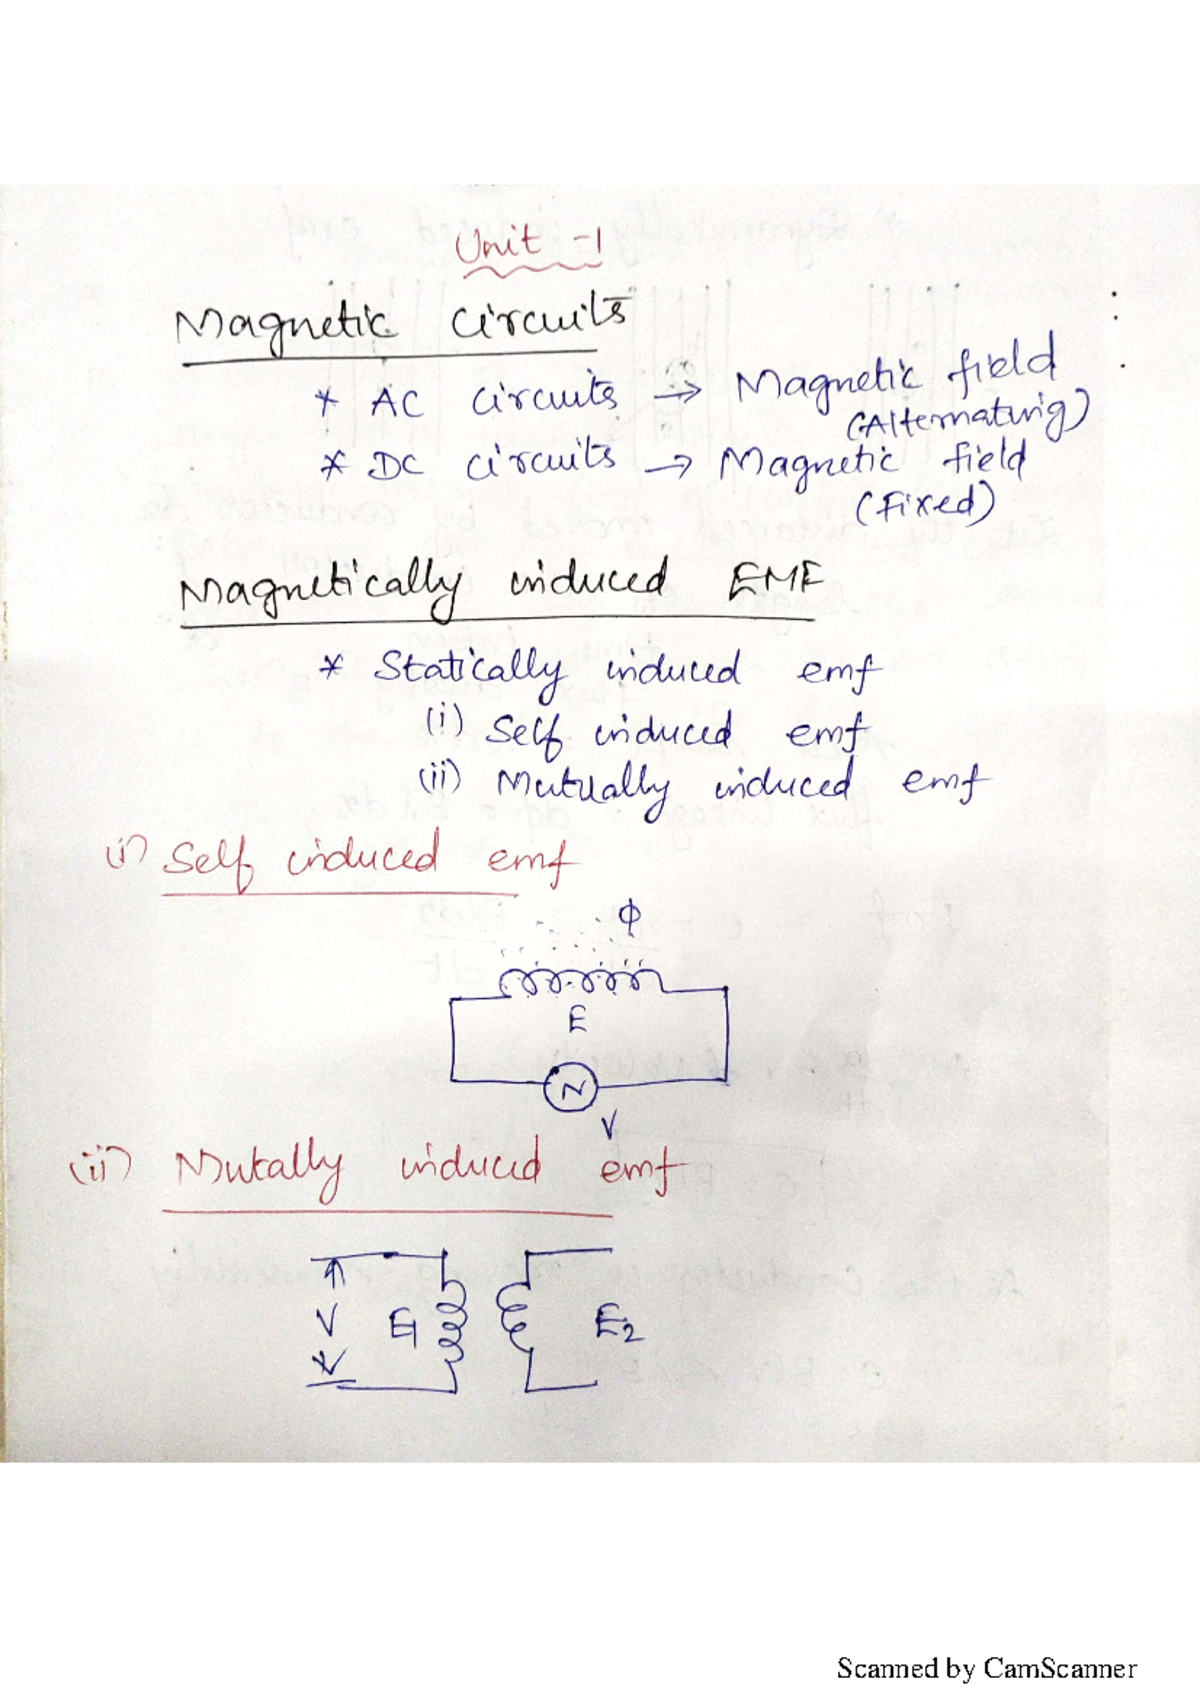 Unit -1
Magnetic circuits
* AC circuits → Magnetic field
(Alternating)
* DC circuits → Magnetic field
(Fixed)
Magnetically induced EMF
* Statically induced emf
(i) Self induced emf
(ii) Mutually induced emf
(i) Self induced emf
Φ
E
N
V
(ii) Mutally induced emf
V E1 E2
Scanned by CamScanner